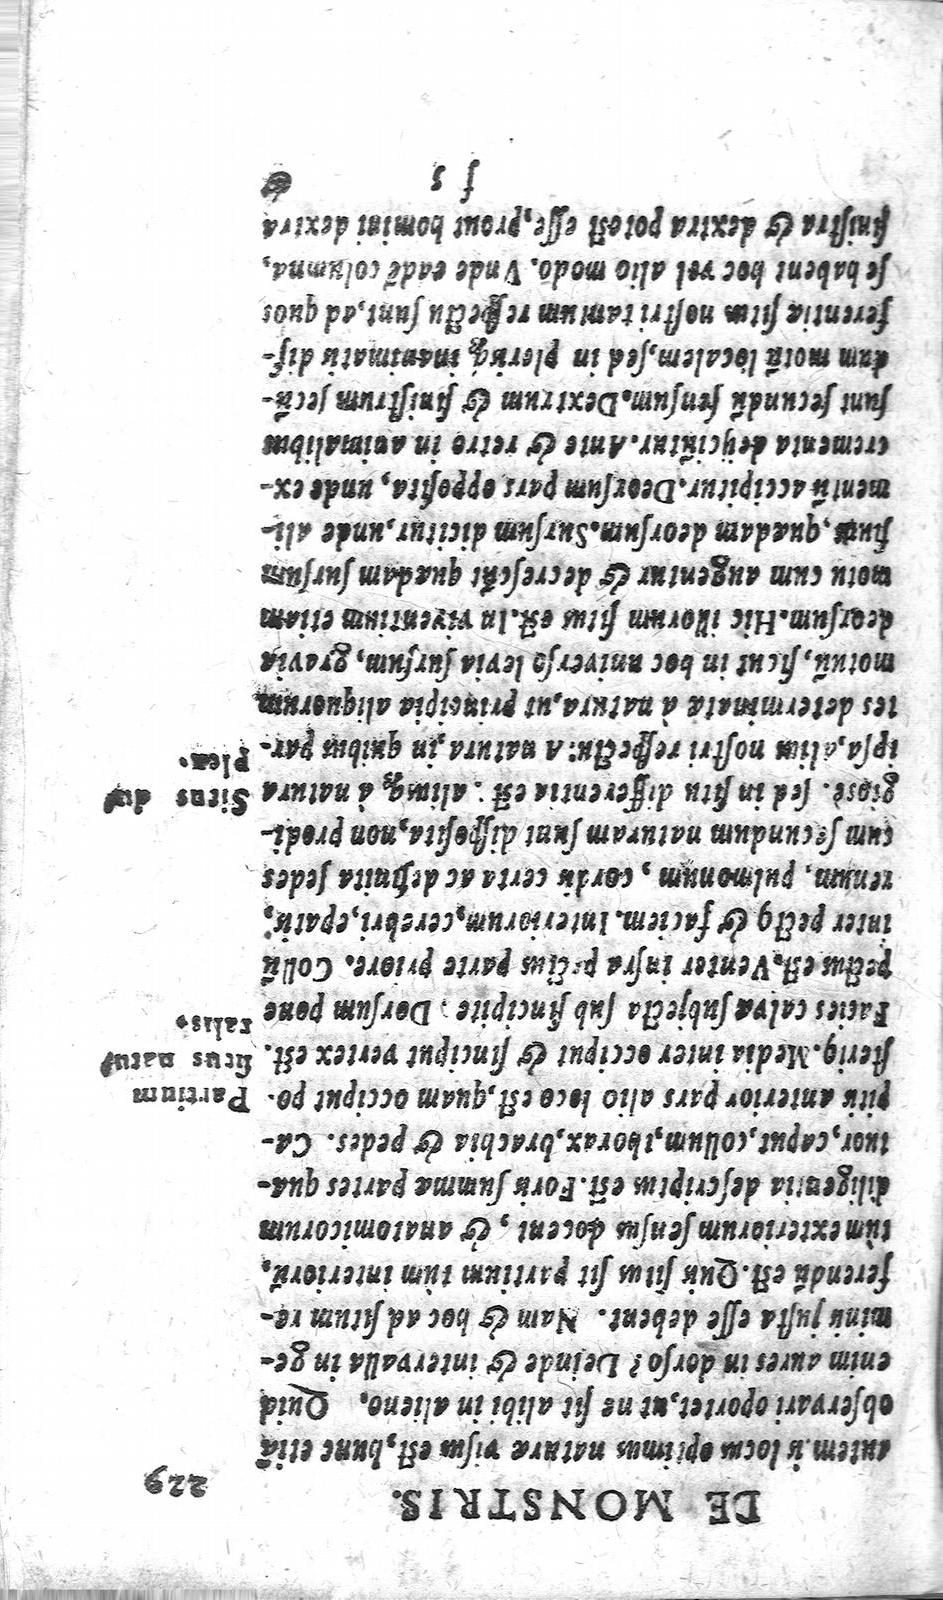 DE MONSTRIS. 229
autem is locus optimus naturæ visus est, hunc etiã
observari oportet, ut ne sit alibi in alieno. Quid
enim aures in dorso? Deinde & intervalla in ge-
minis justa esse debent. Nam & hoc ad situm re-
ferendũ est. Quis situs sit partium tùm interiorũ,
tùm exteriorum sensus docent, & anatomicorum
diligentia descriptus est. Foris summæ partes qua-
tuor, caput, collum, thorax, brachia & pedes. Ca-
pitis anterior pars alio loco est, quam occiput po-
sterig. Media inter occiput & sinciput vertex est.
Facies calvæ subjecta sub sincipite: Dorsum ponè
pectus est. Venter infra pectus parte priore. Collũ
inter pectg & faciem. Interiorum, cerebri, epatis,
renum, pulmonum, cordis certa ac definita sedes
cum secundum naturam sunt disposita, non prodi-
giosè. sed in situ differentia est: aliusq; à natura
ipsa, alius nostri respectu: A natura, in quibus par-
tes determinatæ à natura, ut principia aliquorum
motuũ, sicut in hoc universo levia sursum, gravia
deorsum. Hic illorum situs est. In viventium etiam
motu cum augentur & decrescũt quædam sursum
sunt, quædam deorsum. Sursum dicitur, unde ali-
mentũ accipitur. Deorsum pars opposita, unde ex-
crementa dejiciũtur. Ante & retro in animalibus
sunt secundũ sensum. Dextrum & sinistrum secũ-
dum motũ localem, sed in plerisq; inanimatis dif-
ferentiæ situs nostri tantum respectu sunt, ad quos
se habent hoc vel alio modo. Vnde eadẽ columna,
sinistra & dextra potest esse, prout homini dextra
f 5 &
Partium
situs natu-
ralis.
Situs du-
plex.